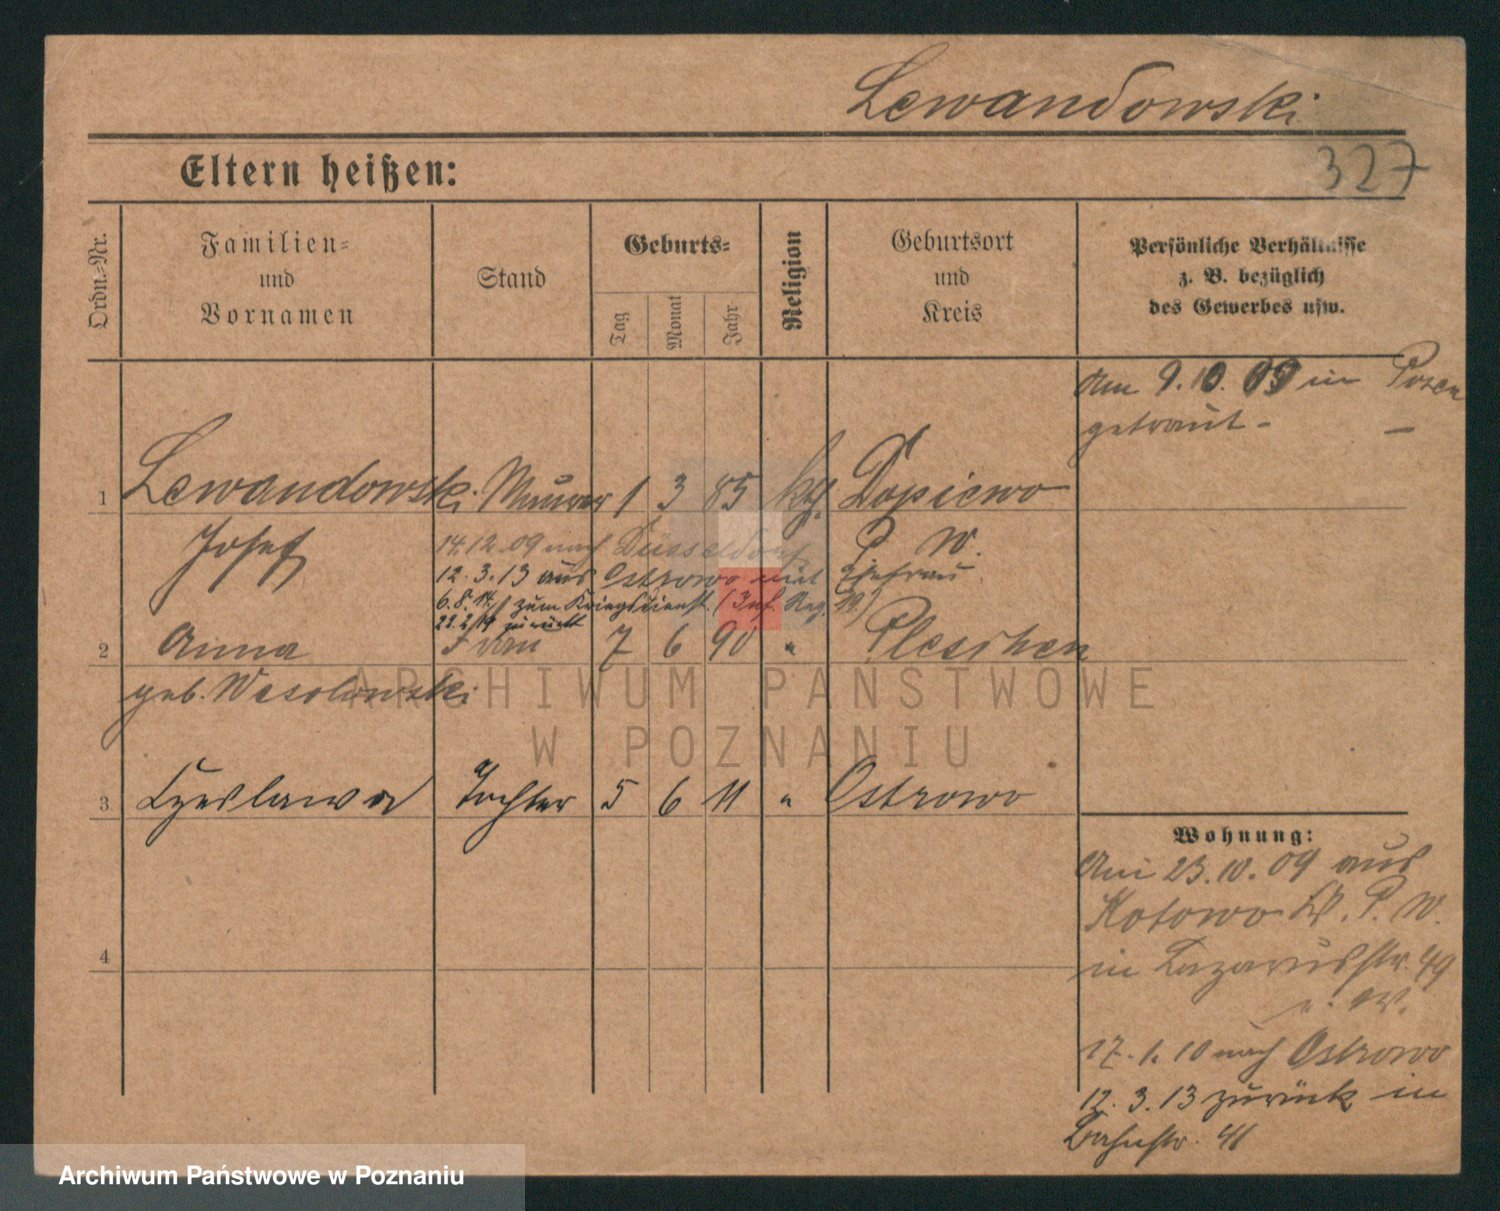 Lewandowski
Eltern heißen:
327
Ordn.-Nr.
Familien-
und
Vornamen
Stand
Geburts-
Tag
Monat
Jahr
Religion
Geburtsort
und
Kreis
Persönliche Verhältnisse
z. B. bezüglich
des Gewerbes usw.
Am 9.10.09 in Posen
getraut -
1 Lewandowski Maurer 1 3 85 kth. Dopiewo
Josef P. W.
14.12.09 nach Düsseldorf
12.3.13 aus Ostrowo mit Ehefrau
6.8.14 zum Kriegsdienst (Inf. Reg.
22.2.19 zurück
2 Anna Frau 7 6 90 " Pleschen
geb. Wesolowski
3 Czeslawa Tochter 5 6 11 " Ostrowo
4
Wohnung:
Am 23.10.09 aus
Kotowo Kr. P. W.
in Lazarusstr. 49
17.1.10 nach Ostrowo
12.3.13 zurück in
Bahnstr. 41
ARCHIWUM PAŃSTWOWE
W POZNANIU
Archiwum Państwowe w Poznaniu